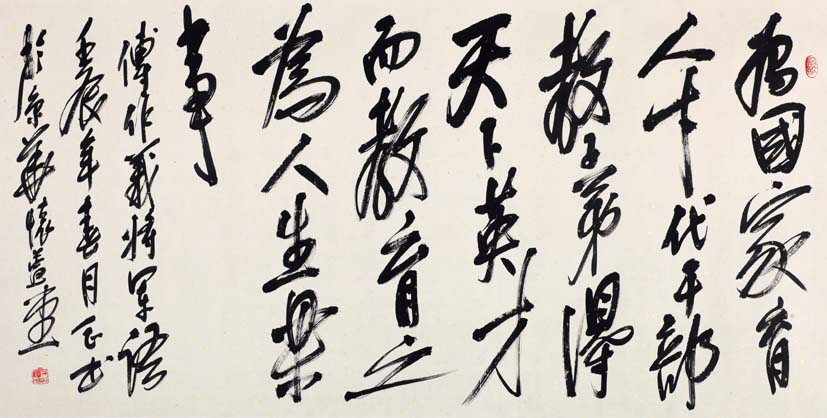 為國家育
人才代干部
教子弟得
天下英才
而教育之
為人生樂
事
傅作義將軍語
壬辰年春月書
於京華懷堂